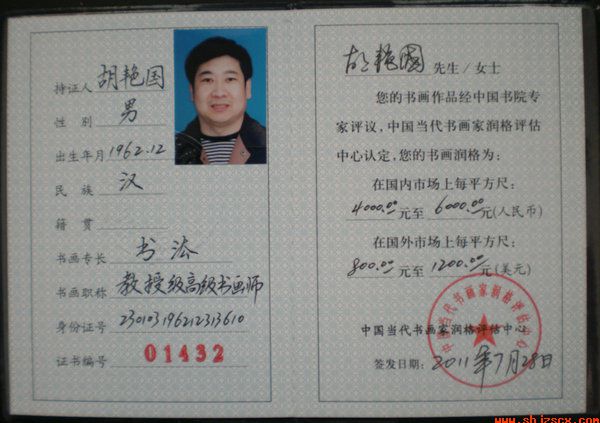 持证人 胡艳国
性别 男
出生年月 1962.12
民族 汉
籍贯
书画专长 书法
书画职称 教授级高级书画师
身份证号 230103196212313610
证书编号 01432
胡艳國 先生/女士
您的书画作品经中国书院专
家评议,中国当代书画家润格评估
中心认定,您的书画润格为:
在国内市场上每平方尺:
4000.00元至 6000.00元(人民币)
在国外市场上每平方尺:
800.00元至 1200.00元(美元)
中国当代书画家润格评估中心
中国当代书画家润格评估中心
签发日期: 2011年7月28日
www.shjzscx.com